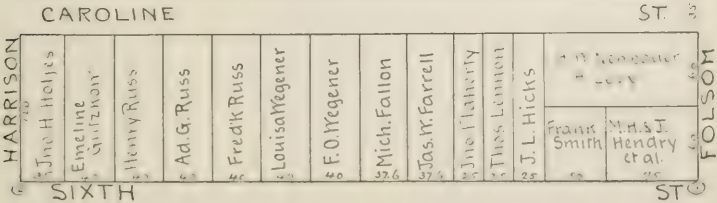 CAROLINE ST.
HARRISON
Jno H Holjes
Emeline
Gutzkon
Henry Russ
Ad. G. Russ
Fredk Russ
Louisa Wegener
F.O. Wegener
40
Mich. Fallon
37.6
Jas. W. Farrell
Jno Flaherty
Thos Lennon
J.L. Hicks
25
Frank
Smith
M.H.&J.
Hendry
et al.
75
FOLSOM
SIXTH ST